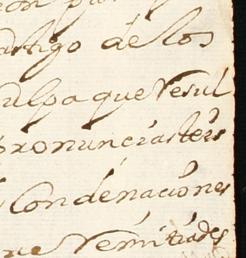 astigo de los
culpa que Resul
pronunciasteis
Condenaciones
que Remitiades